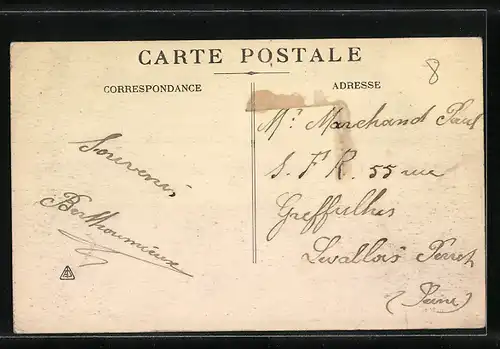 CARTE POSTALE
CORRESPONDANCE
ADRESSE
8
Souvenir
Berthoumieux
Mr Marchand Paul
S. F R. 55 rue
Greffulhes
Levallois Perret
(Seine)